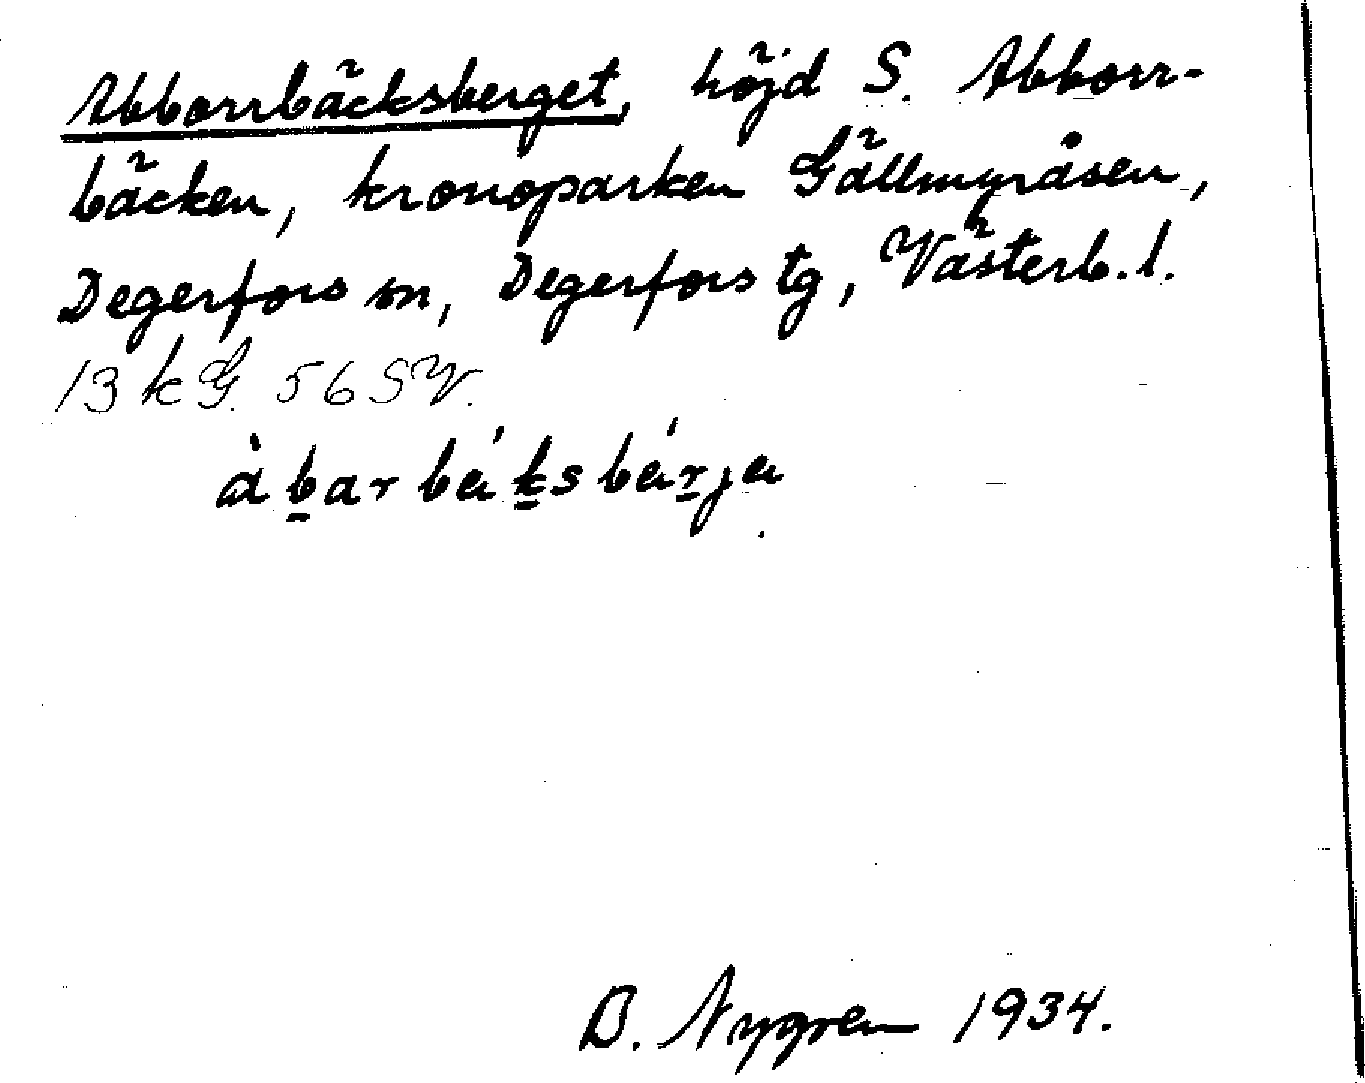 Abborrbäcksberget, höjd S. Abborr-
bäcken, kronoparken Gällmyråsen,
Degerfors sn, Degerfors tg, Västerb. l.
13 k G. 56 SV.
àbarbáksbárja
B. Nygren 1934.